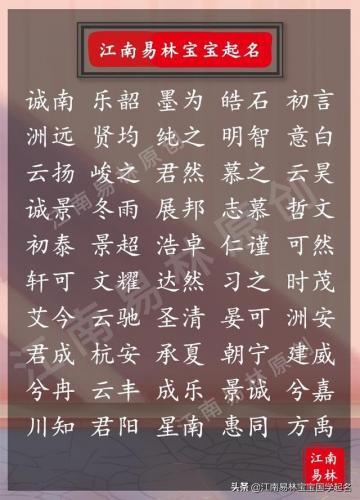 江南易林宝宝起名
诚南 乐韶 墨为 皓石 初言
洲远 贤均 纯之 明智 意白
云扬 峻之 君然 慕之 云昊
诚景 冬雨 展邦 志慕 哲文
初泰 景超 浩卓 仁谨 可然
轩可 文耀 达然 习之 时茂
艾今 云驰 圣清 晏可 洲安
君成 杭安 承夏 朝宁 建威
兮冉 云丰 成乐 景诚 兮嘉
川知 君阳 星南 惠同 方禹
江南易林原创
江南易林原创
江南易林原创
江南
易林
头条 @江南易林宝宝国学起名